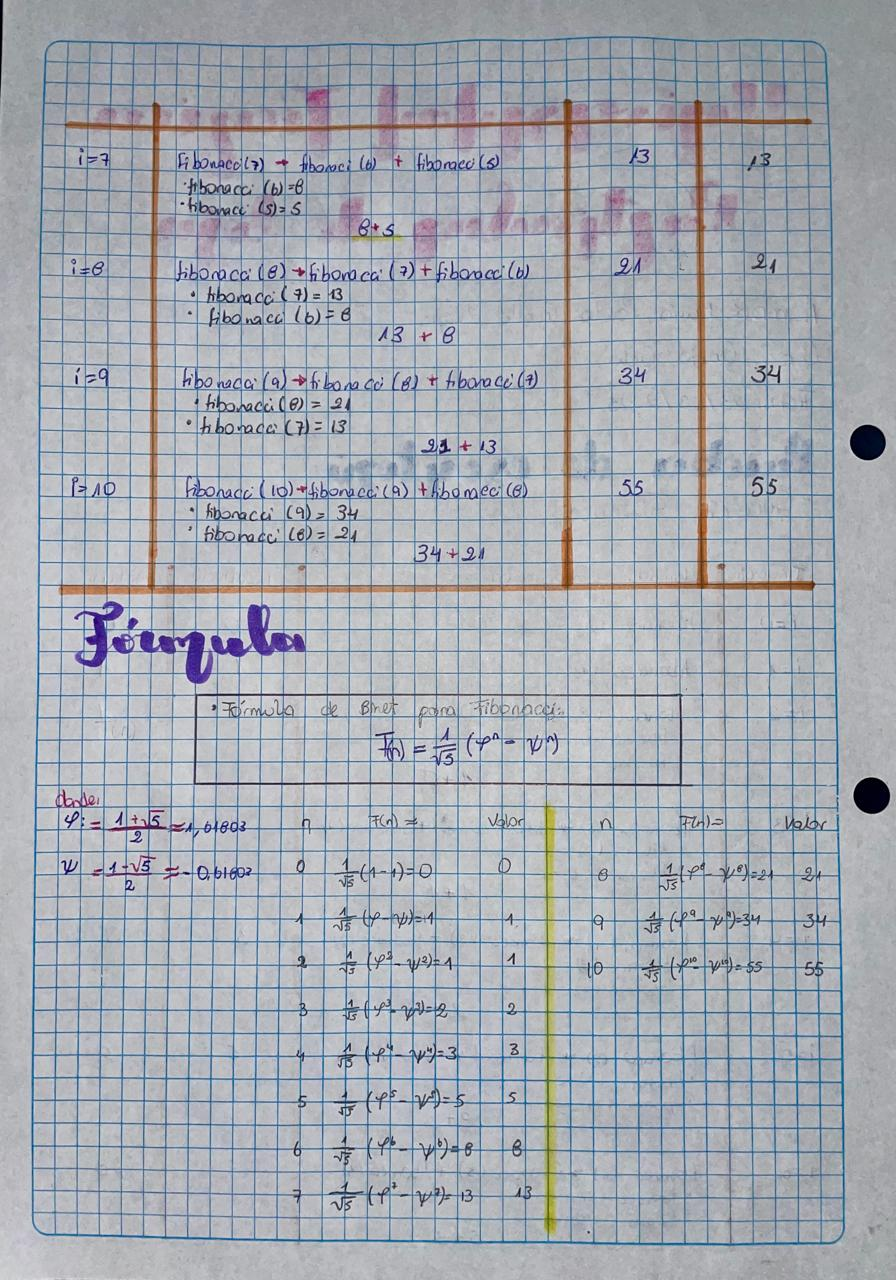 i=7 Fibonacci(7) → fibonaci (6) + fibonacci(5) 13 13
·fibonacci (6)=8
·fibonacci (5)=5
8+5
i=8 fibonacci (8)→fibonacci (7)+fibonacci(6) 21 21
• fibonacci (7)=13
• fibonacci (6)=8
13 + 8
i=9 fibonacci(9)→fibonacci (8) + fibonacci(7) 34 34
• fibonacci(8) = 21
• fibonacci(7)=13
21 + 13
i=10 fibonacci(10)→fibonacci(9) +fibonacci(8) 55 55
• fibonacci (9)= 34
• fibonacci (8)= 21
34+21
Fórmula
• Fórmula de Binet para Fibonacci:
F(n) = 1/√5 (φⁿ - ψⁿ)
donde:
φ: = 1+√5/2 ≈1,61803
ψ = 1-√5/2 ≈ -0,61803
n F(n) = Valor
0 1/√5(1-1)=0 0
1 1/√5(φ-ψ)=1 1
2 1/√5 (φ²-ψ²)=1 1
3 1/√5(φ³-ψ³)=2 2
4 1/√5 (φ⁴-ψ⁴)=3 3
5 1/√5 (φ⁵-ψ⁵)=5 5
6 1/√5 (φ⁶-ψ⁶)=8 8
7 1/√5(φ⁷-ψ⁷)=13 13
n F(n)= Valor
8 1/√5(φ⁸-ψ⁸)=21 21
9 1/√5 (φ⁹-ψ⁹)=34 34
10 1/√5 (φ¹⁰-ψ¹⁰)=55 55